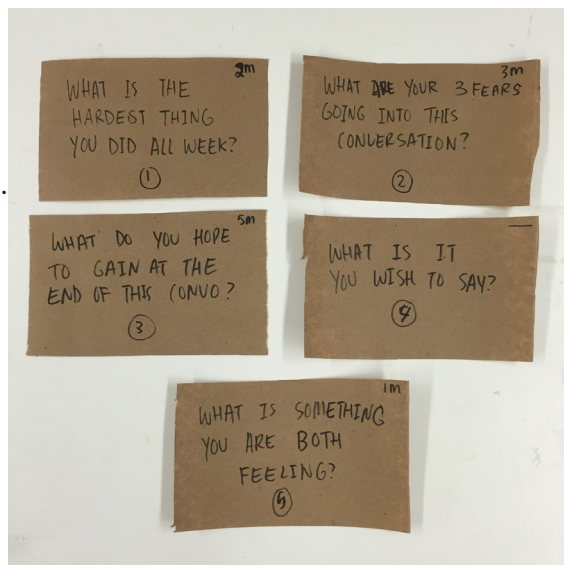 2m
WHAT IS THE
HARDEST THING
YOU DID ALL WEEK?
1
3m
WHAT ARE YOUR 3 FEARS
GOING INTO THIS
CONVERSATION?
2
5m
WHAT DO YOU HOPE
TO GAIN AT THE
END OF THIS CONVO?
3
WHAT IS IT
YOU WISH TO SAY?
4
1m
WHAT IS SOMETHING
YOU ARE BOTH
FEELING?
5